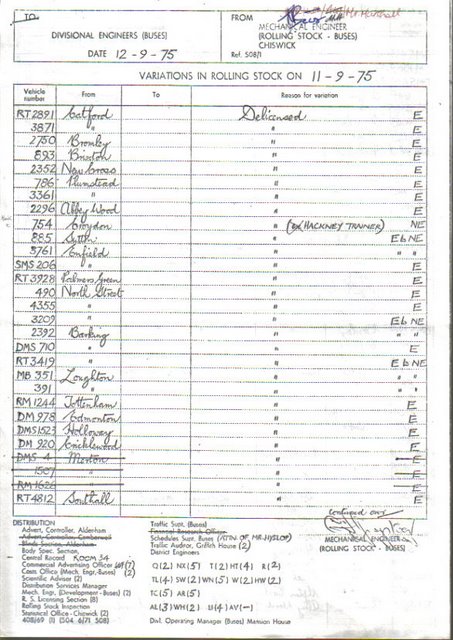 TO
DIVISIONAL ENGINEERS (BUSES)
DATE 12-9-75
FROM
MECHANICAL ENGINEER
(ROLLING STOCK - BUSES)
CHISWICK
Ref. 508/1
VARIATIONS IN ROLLING STOCK ON 11-9-75
Vehicle number From To Reason for variation
RT2891 Catford Delicensed E
3871 " " E
2750 Bromley " E
893 Brixton " E
2352 New Cross " E
786 Plumstead " E
3361 " " E
2296 Abbey Wood " E
754 Croydon " (ex HACKNEY TRAINER) NE
885 Sutton " Eb NE
3761 Enfield " " "
SMS 206 " " E
RT3928 Palmers Green " E
490 North Street " E
4355 " " E
3209 " " Eb NE
2392 Barking " " "
DMS 710 " " E
RT3419 " " Eb NE
MB 351 Loughton " " "
391 " " " "
RM 1244 Tottenham " E
DM 978 Edmonton " E
DMS1523 Holloway " E
DM 920 Cricklewood " E
DMS 4 Merton " E
1507 " E
RM 1626 " E
RT4812 Southall " E
continued over
MECHANICAL ENGINEER
(ROLLING STOCK - BUSES)
DISTRIBUTION
Advert. Controller, Aldenham
Advert. Controller, Camberwell
Blinds Section, Aldenham
Body Spec. Section,
Central Record ROOM 34
Commercial Advertising Officer (7)
Costs Office (Mech. Engr.-Buses) (2)
Scientific Adviser (2)
Distribution Services Manager
Mech. Engr. (Development - Buses) (2)
R. S. Licensing Section (8)
Rolling Stock Inspection
Statistical Office - Chiswick (2)
408/69 (1) (504 6/71 508)
Traffic Supt. (Buses)
Financial Research Officer
Schedules Supt. Buses (ATTN. OF MR HYSLOP)
Traffic Auditor, Griffith House (2)
District Engineers
Q(2) NX(5) T(2) HT(4) R(2)
TL(4) SW(2) WN(5) W(2) HW(2)
TC(5) AR(5)
AL(3) WH(2) U(4) AV(-)
Divl. Operating Manager (Buses) Mansion House